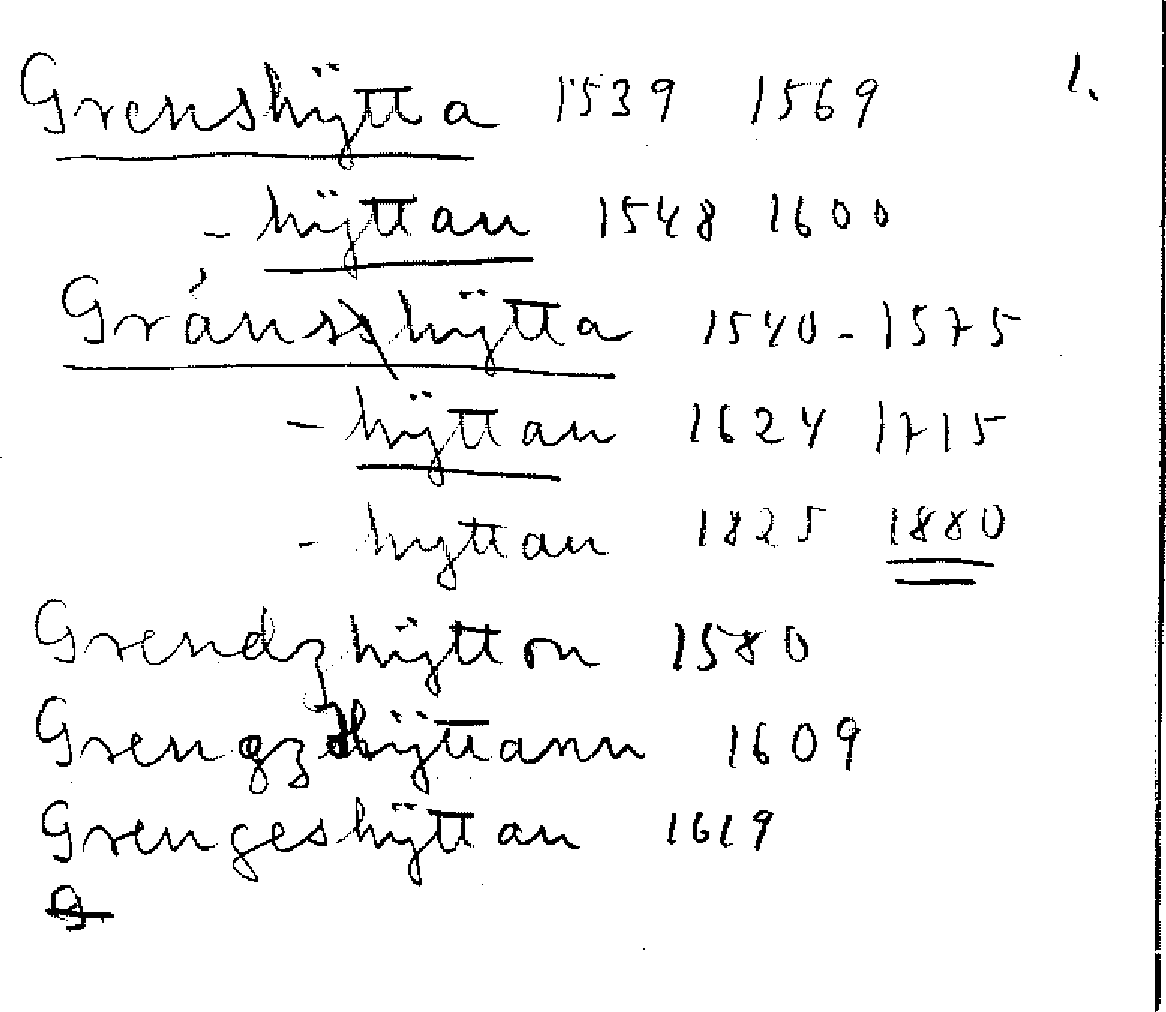 Grenshÿtta 1539 1569 1.
- hÿttan 1548 1600
Gránshÿtta 1540-1575
- hÿttan 1624 1715
- hyttan 1825 1880
Grendzhÿtton 1580
Grengzhÿttann 1609
Grengeshÿttan 1619